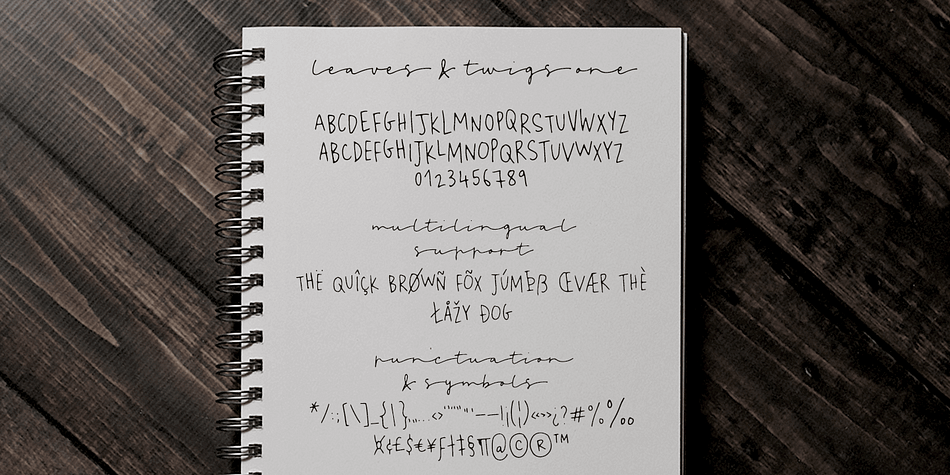 leaves & twigs one
ABCDEFGHIJKLMNOPQRSTUVWXYZ
ABCDEFGHIJKLMNOPQRSTUVWXYZ
0123456789
multilingual
support
THË QUÎÇK BRØWÑ FÕX JÚMÞẞ ŒVÆR THÈ
ŁÅŽY ÐOG
punctuation
& symbols
*/:;[\]_{|}‚„…‹›''""'"–—!¡(¦)«»>¿?#%‰
¤¢£$€¥ƒ†‡§¶@©®™